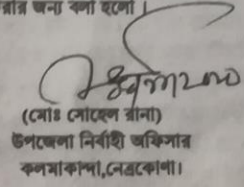 জন্য বলা হলো।
(মোঃ সোহেল রানা)
উপজেলা নির্বাহী অফিসার
কলমাকান্দা,নেত্রকোণা।